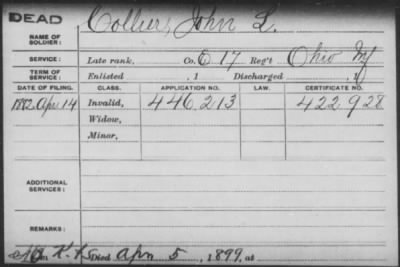 DEAD
NAME OF SOLDIER: Collier, John L.
SERVICE: Late rank, Co. 6 17 Reg't Ohio Inf
TERM OF SERVICE: Enlisted , 1 Discharged , 1
DATE OF FILING. CLASS. APPLICATION NO. LAW. CERTIFICATE NO.
1882 Apr 14 Invalid, 446 213 422 928
Widow,
Minor,
ADDITIONAL SERVICES:
REMARKS:
Died Apr 5, 1899, at